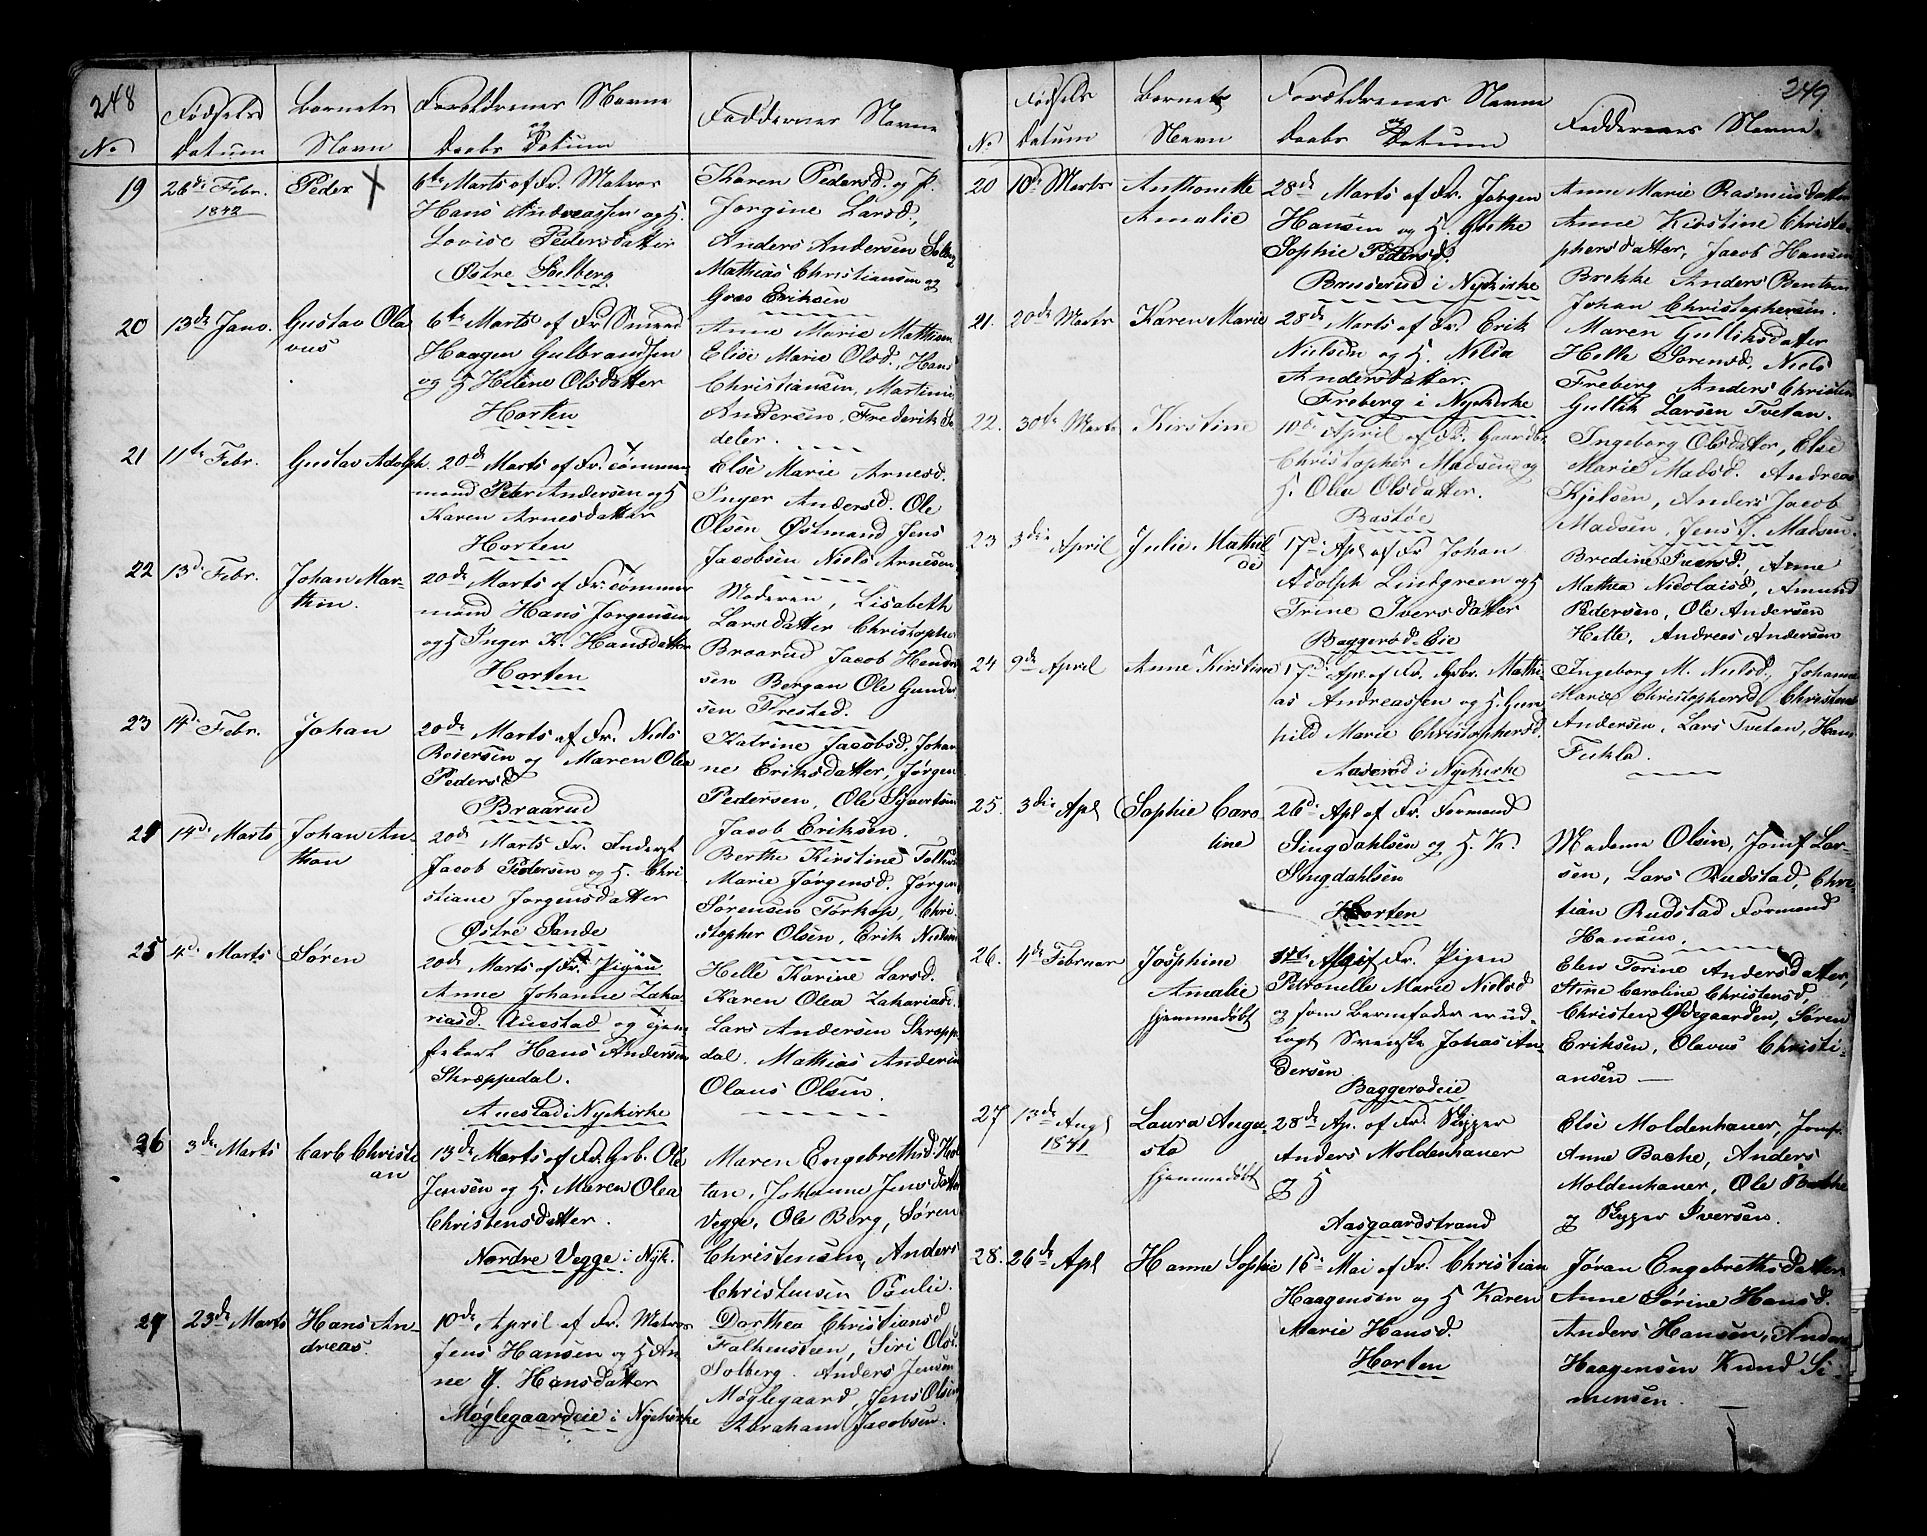 248
No
Fødsels
Datum
Barnets
Navn
Forældrenes Navne
og
Daabs Datum
Faddernes Navne
19
26de Febr.
1842
Peder X
6te Marts af Fr. Matros
Hans Andreassen og H.
Lovise Pedersdatter
Østre Solberg
Karen Pedersd. og P.
Jørgine Larsd,
Anders Andersen Solberg
Mathias Christiansen og
Eriksen
20
13de Janv.
Gustav Ola
vus
6te Marts af Fr. Smed
Haagen Gulbrandsen
og H Helene Olsdatter
Horten
Anne Marie Mathisen
Elise Marie Olsd, Hans
Christiansen, Martinus
Andersen, Frederik
21
11te Febr.
Gustav Adolph
20de Marts af Fr. Tømmer
mand Peter Andersen og H
Karen Arnesdatter
Horten
Else Marie Arnesd.
Inger Andersd. Ole
Olsen Østmand Jens
Jacobsen Niels Arnesen
22
13de Febr.
Johan Mar-
thin.
20de Marts af Fr. Tømmer
mand Hans Jørgensen
og H Inger K. Hansdatter
Horten
Moderen, Lisabeth
Larsdatter Christopher
Braarud Jacob Hendri
sen Bergan Ole Gunder
sen Frestad.
23
14de Febr.
Johan
20de Marts af Fr. Niels
Reiersen og Maren Olea
Pedersd
Braarud
Katrine Jacobsd, Johan
ne Eriksdatter, Jørgen
Pedersen, Ole Syvertsen
Jacob Eriksen.
24
14de Marts
Johan An-
thon
20de Marts Fr. Inderst
Jacob Pedersen og H. Chri
stiane Jørgensdatter
Østre Sande
Berthe Kirstine
Marie Jørgensd. Jørgen
Sørensen Torkop, Chri
stopher Olsen, Erik Nielsen
25
4de Marts
Søren
20de Marts af Fr. Pigen
Anne Johanne Zaha
riasd. Auestad og
Hans Andersen
Skreppedal.
Auestad i Nykirke
Helle Karine Larsd.
Karen Olea Zahariasd.
Lars Andersen Skreppe
dal. Mathias Andersen
Olaus Olsen.
26
3die Marts
Carl Christi
an
13de Marts af Fr. Grb. Ole
Jensen og H. Maren Olea
Christensdatter.
Nordre Vegge i Nyk.
Maren Engebrethsd.
tan, Johanne Jensdatter
Vegge, Ole Berg, Søren
Christensen, Anders
Christensen Paulie.
27
23de Marts
Hans An-
dreas.
10de April af Fr. Matros
Jens Hansen og H An
ne J. Hansdatter
Møglegaardeie i Nykirke
Dorthea Christiansd
Falkensteen, Siri Olsd.
Solberg. Anders Jensen
Møglegaard, Jens Olsen
Abraham Jacobsen.
249.
No
Fødsels
Datum
Barnets
Navn
Forældrenes Navne
og
Daabs Datum
Faddernes Navne
20
10de Marts
Anthonette
Amalie
28de Marts af Fr. Jørgen
Hansen og H. Grethe
Sophie Pedersd.
Bruserud i Nykirke
Anne Marie Rasmusdatter
Anne Kirstine Christo-
phersdatter, Jacob Hansen
Brekke Anders Bentsen
Johan Christophersen.
21.
20de Marts
Karen Marie
28de Marts af Fr. Erik
Nielsen og H. Nilia
Andersdatter.
Freberg i Nykirke
Maren Gulliksdatter
Helle Sørensd, Niels
Freberg Anders Christen
Gullik Larsen Tvetan.
22.
30te Marts
Kirstine
10de April af Fr. Gaardbr
Christopher Madsen og
H. Olea Olsdatter.
Bastøe
Ingeborg Olsdatter, Else
Marie Madsd. Andreas
Kjelsen, Anders Jacob
Madsen, Jens J. Madsen.
23
3die April
Julie Mathil
de
17de Apl af Fr Johan
Adolph Lindgreen og H
Trine Iversdatter
Baggerød Eie
Bredine Iversd, Anne
Mathea Nicolaisd, Amund
Pedersen, Ole Andersen
Helle, Andreas Andersen
24
9de April
Anne Kirstine
17de Apl. af Fr. Grbr. Mathi
as Andreassen og H. Gun
hild Marie Christophersd
Aaserød i Nykirke
Ingeborg M. Nielsd, Johanne
Marie Christophersd, Christian
Andersen, Lars Tvetan, Hans
Fukla.
25.
3die Apl
Sophie Caro-
line
26de Apl af Fr. Formand
Singdahlsen og H. K.
Singdahlsen
Horten
Madame Olsen, Jomf Lar-
sen, Lars Rudstad, Chri-
tian Rudstad Formand
Hansen.
26.
4de Februar
Josphine
Amalie
hjemmedøbt
af Fr. Pigen
Petronelle Marie Nielsd
og som Barnefader er ud-
lagt Svenske Johas An-
dersen
Baggerødeie
Elen Torine Andersdatter,
Stine Caroline Christensd,
Christen Ødegaarden, Søren
Eriksen, Olavus Christi-
ansen
27
13de Augl
1841
Laura Augu-
sta
hjemmedøbt
28de Ap. af Fr. Skipper
Anders Moldenhauer
og H
Aasgaardstrand
Else Moldenhauer, Jomf.
Anne Bache, Anders
Moldenhauer, Ole Bache
og Skipper Iversen.
28.
26de Apl
Hanne Sophie
16de Mai af Fr. Christian
Haagensen og H Karen
Marie Hansd.
Horten
Jøran Engebrethsdatter
Anne Sørine Hansd.
Anders Hansen, Anders
Haagensen Knud Si-
mensen.